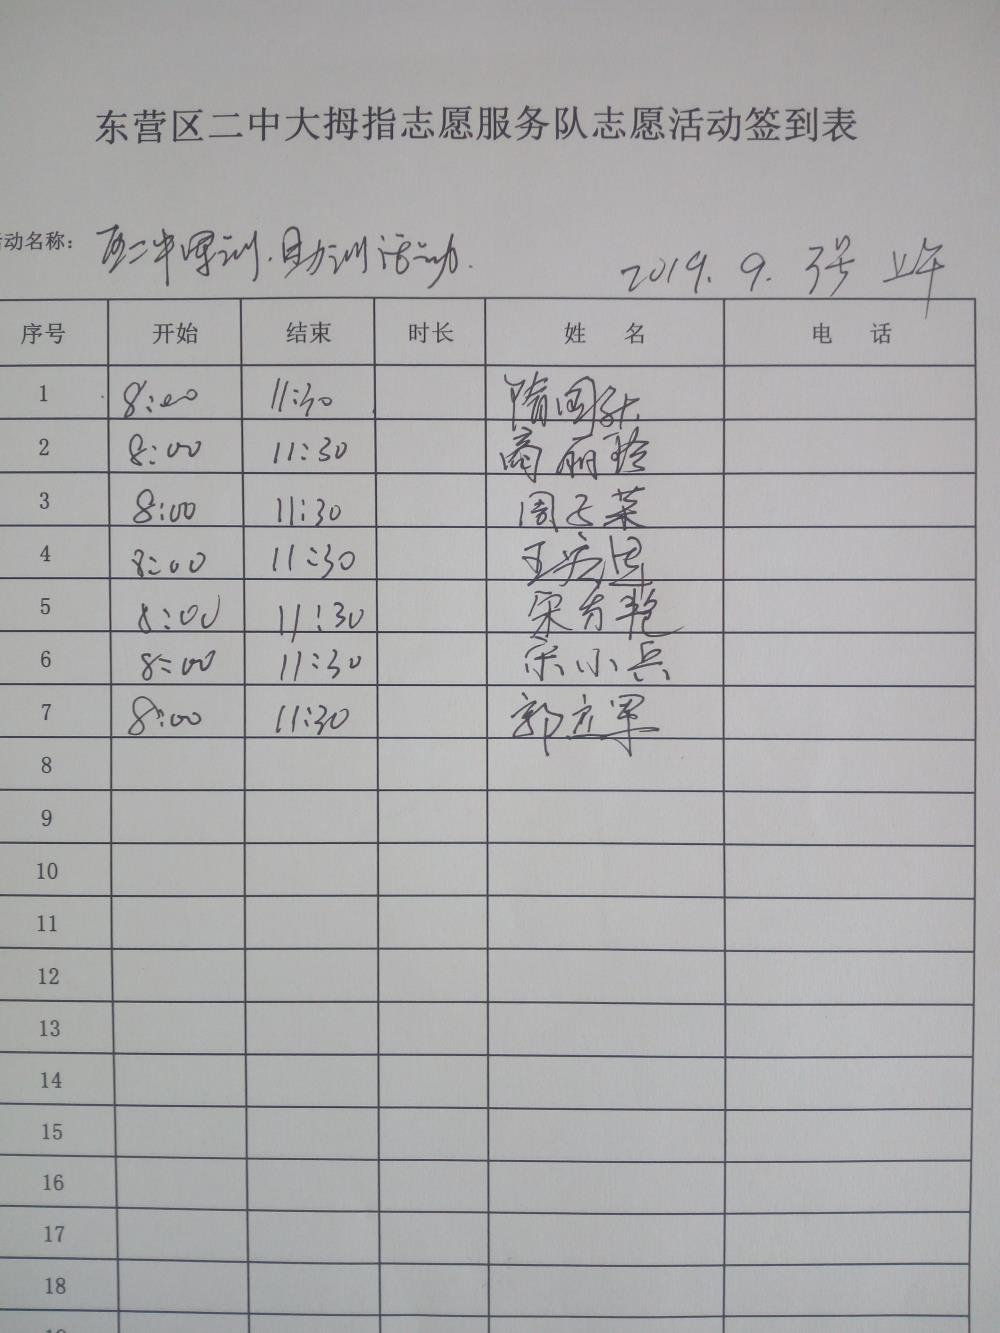 东营区二中大拇指志愿服务队志愿活动签到表
动名称: 二中军训.助训活动. 2019. 9. 3号 上午
序号 开始 结束 时长 姓 名 电 话
1 8:00 11:30 隋国
2 8:00 11:30 商丽玲
3 8:00 11:30 周玉荣
4 8:00 11:30 王
5 8:00 11:30 宋秀艳
6 8:00 11:30 宋小兵
7 8:00 11:30 郭立军
8
9
10
11
12
13
14
15
16
17
18